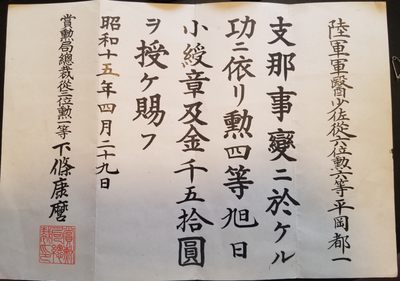 陸軍軍醫少佐從六位勲六等平岡都一
支那事變ニ於ケル
功ニ依リ勲四等旭日
小綬章及金千五拾圓
ヲ授ケ賜フ
昭和十五年四月二十九日
賞勲局總裁從三位勲一等下條康麿